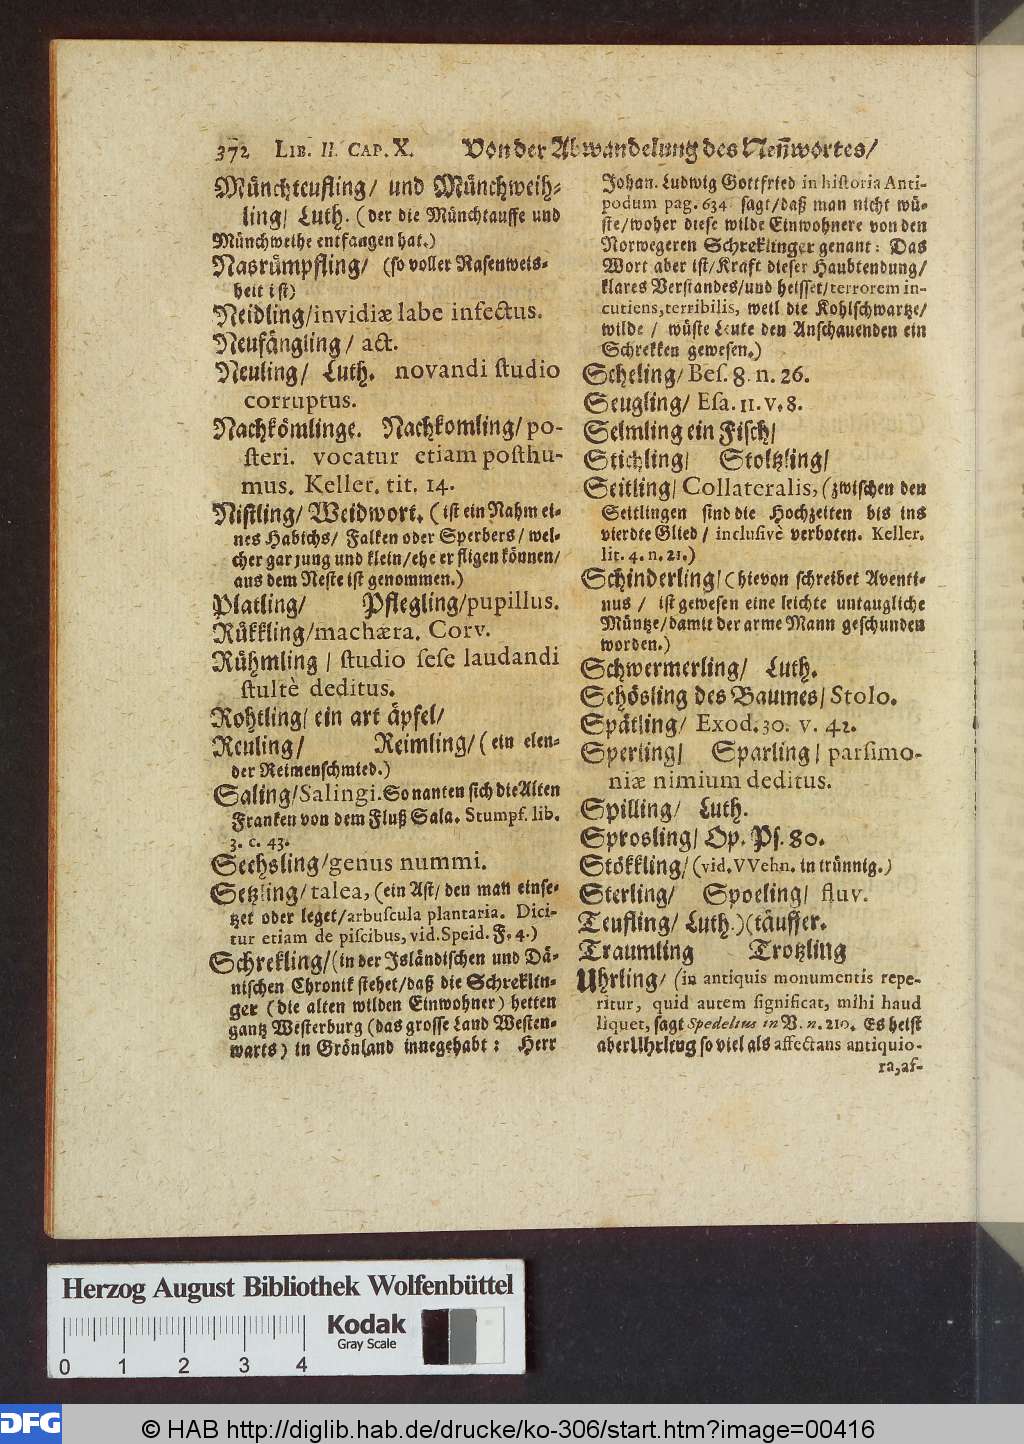 372 LIB. II. CAP. X. Von der Abwandelung des Neñwortes/
Münchteufling/ und Münchweih⸗
ling/ Luth. (der die Münchtauffe und
Münchweihe entfangen hat.)
Nasrümpfling/ (so voller Nasenweis⸗
heit ist)
Neidling/invidiæ labe infectus.
Neufängling/ act.
Neuling/ Luth. novandi ſtudio
corruptus.
Nachkömlinge. Nachkomling/ po-
ſteri. vocatur etiam poſthu-
mus. Keller. tit. 14.
Niſtling/ Weidwort. (iſt ein Nahm ei⸗
nes Habichs/ Falken oder Sperbers/ wel⸗
cher gar jung und klein/ehe er fligen können/
aus dem Neſte iſt genommen.)
Platling/ Pflegling/pupillus.
Rükkling/machæra. Corv.
Rühmling / ſtudio ſeſe laudandi
ſtultè deditus.
Rohtling/ ein art äpfel/
Reuling/ Reimling/ (ein elen⸗
der Reimenſchmied.)
Saling/Salingi. So nanten ſich die Alten
Franken von dem Fluß Sala. Stumpf. lib.
3. c. 43.
Sechsling/genus nummi.
Setzling/ talea, (ein Aſt/ den man einſe⸗
tzet oder leget/arbuſcula plantaria. Dici-
tur etiam de piſcibus, vid. Speid. F. 4.)
Schrekling/(in der Isländiſchen und Dä⸗
niſchen Chronik ſtehet/daß die Schreklin⸗
ger (die alten wilden Einwohner) hetten
gantz Weſterburg (das groſſe Land Weſten⸗
warts) in Grönland innegehabt: Herr
Johan. Ludwig Gottfried in hiſtoria Anti-
podum pag. 634 ſagt/daß man nicht wü⸗
ſte/woher dieſe wilde Einwohnere von den
Norwegeren Schreklinger genant: Das
Wort aber iſt/Kraft dieſer Haubtendung/
klares Verſtandes/und heiſſet/terrorem in-
cutiens, terribilis, weil die Kohlſchwartze/
wilde / wüſte Leute den Anſchauenden ein
Schrekken geweſen.)
Scheling/ Beſ. 8. n. 26.
Seugling/ Eſa. 11. v. 8.
Selmling ein Fiſch/
Stichling/ Stoltzling/
Seitling/ Collateralis, (zwiſchen den
Seitlingen ſind die Hochzeiten bis ins
vierdte Glied / incluſivè verboten. Keller.
lit. 4. n. 21.)
Schinderling/ (hievon ſchreibet Aventi⸗
nus / iſt geweſen eine leichte untaugliche
Müntze/damit der arme Mann geſchunden
worden.)
Schwermerling/ Luth.
Schösling des Baumes/ Stolo.
Spätling/ Exod. 30. v. 42.
Sperling/ Sparling / parſimo-
niæ nimium deditus.
Spilling/ Luth.
Sprosling/ Op. Pſ. 80.
Stökkling/ (vid. VVehn. in trünnig.)
Sterling/ Spoeling/ fluv.
Teufling/ Luth.)(täuffer.
Traumling Trotzling
Uhrling/ (in antiquis monumentis repe-
ritur, quid autem ſignificat, mihi haud
liquet, ſagt Spedelius in V. n. 210. Es heiſt
aber Uhrling ſo viel als affectans antiquio-
ra, af-
Herzog August Bibliothek Wolfenbüttel
Kodak
Gray Scale
0 1 2 3 4
DFG © HAB http://diglib.hab.de/drucke/ko-306/start.htm?image=00416